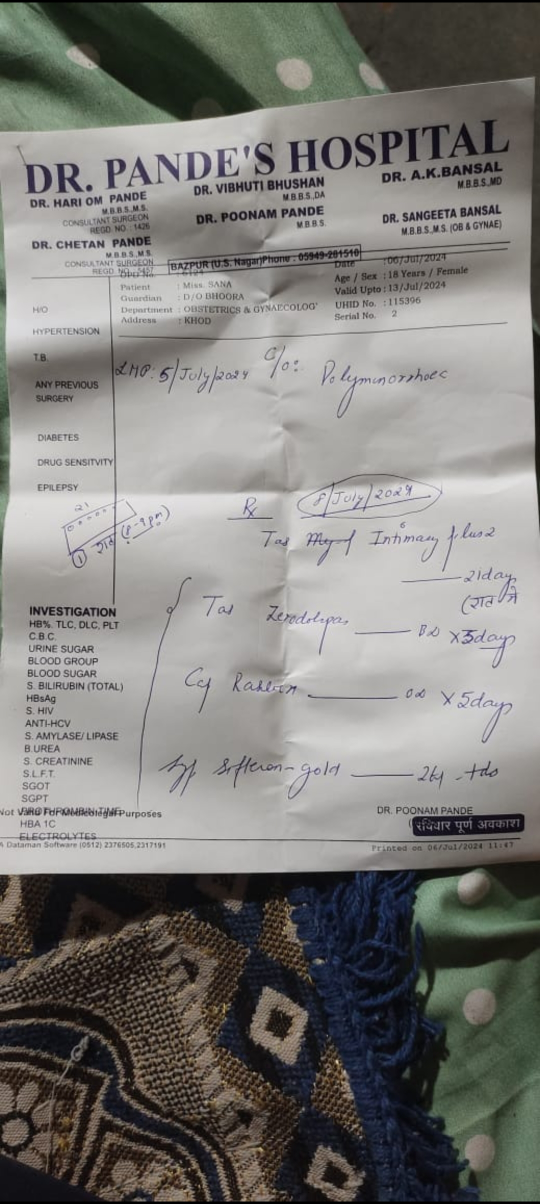 DR. PANDE'S HOSPITAL
DR. HARI OM PANDE
M.B.B.S.,M.S.
CONSULTANT SURGEON
REGD. NO. : 1426
DR. CHETAN PANDE
M.B.B.S.,M.S.
CONSULTANT SURGEON
REGD. NO.
DR. VIBHUTI BHUSHAN
M.B.B.S.,DA
DR. POONAM PANDE
M.B.B.S.
DR. A.K.BANSAL
M.B.B.S.,MD
DR. SANGEETA BANSAL
M.B.B.S.,M.S. (OB & GYNAE)
BAZPUR (U.S. Nagar)Phone : 05949-281510
Patient : Miss. SANA
Guardian : D/O BHOORA
Department : OBSTETRICS & GYNAECOLOG'
Address : KHOD
Date :06/Jul/2024
Age / Sex : 18 Years / Female
Valid Upto : 13/Jul/2024
UHID No. : 115396
Serial No. 2
H/O
HYPERTENSION
T.B.
ANY PREVIOUS
SURGERY
DIABETES
DRUG SENSITVITY
EPILEPSY
LMP: 5/July/2024 C/o: Polymenorrhoec
21
① रात (8-9pm)
Rx 8/July/2024
Tab Intimacy plus 2
21day
(रात में
Tab Zerodolspas BD X3days
Cap OD X5days
Syp Sofferon-gold 2tsf tds
INVESTIGATION
HB%. TLC, DLC, PLT
C.B.C.
URINE SUGAR
BLOOD GROUP
BLOOD SUGAR
S. BILIRUBIN (TOTAL)
HBsAg
S. HIV
ANTI-HCV
S. AMYLASE/ LIPASE
B.UREA
S. CREATININE
S.L.F.T.
SGOT
SGPT
PROTHROMBIN TIME
Not Valid For Medicolegal Purposes
HBA 1C
ELECTROLYTES
DR. POONAM PANDE
रविवार पूर्ण अवकाश
Dataman Software (0512) 2376505,2317191
Printed on 06/Jul/2024 11:47